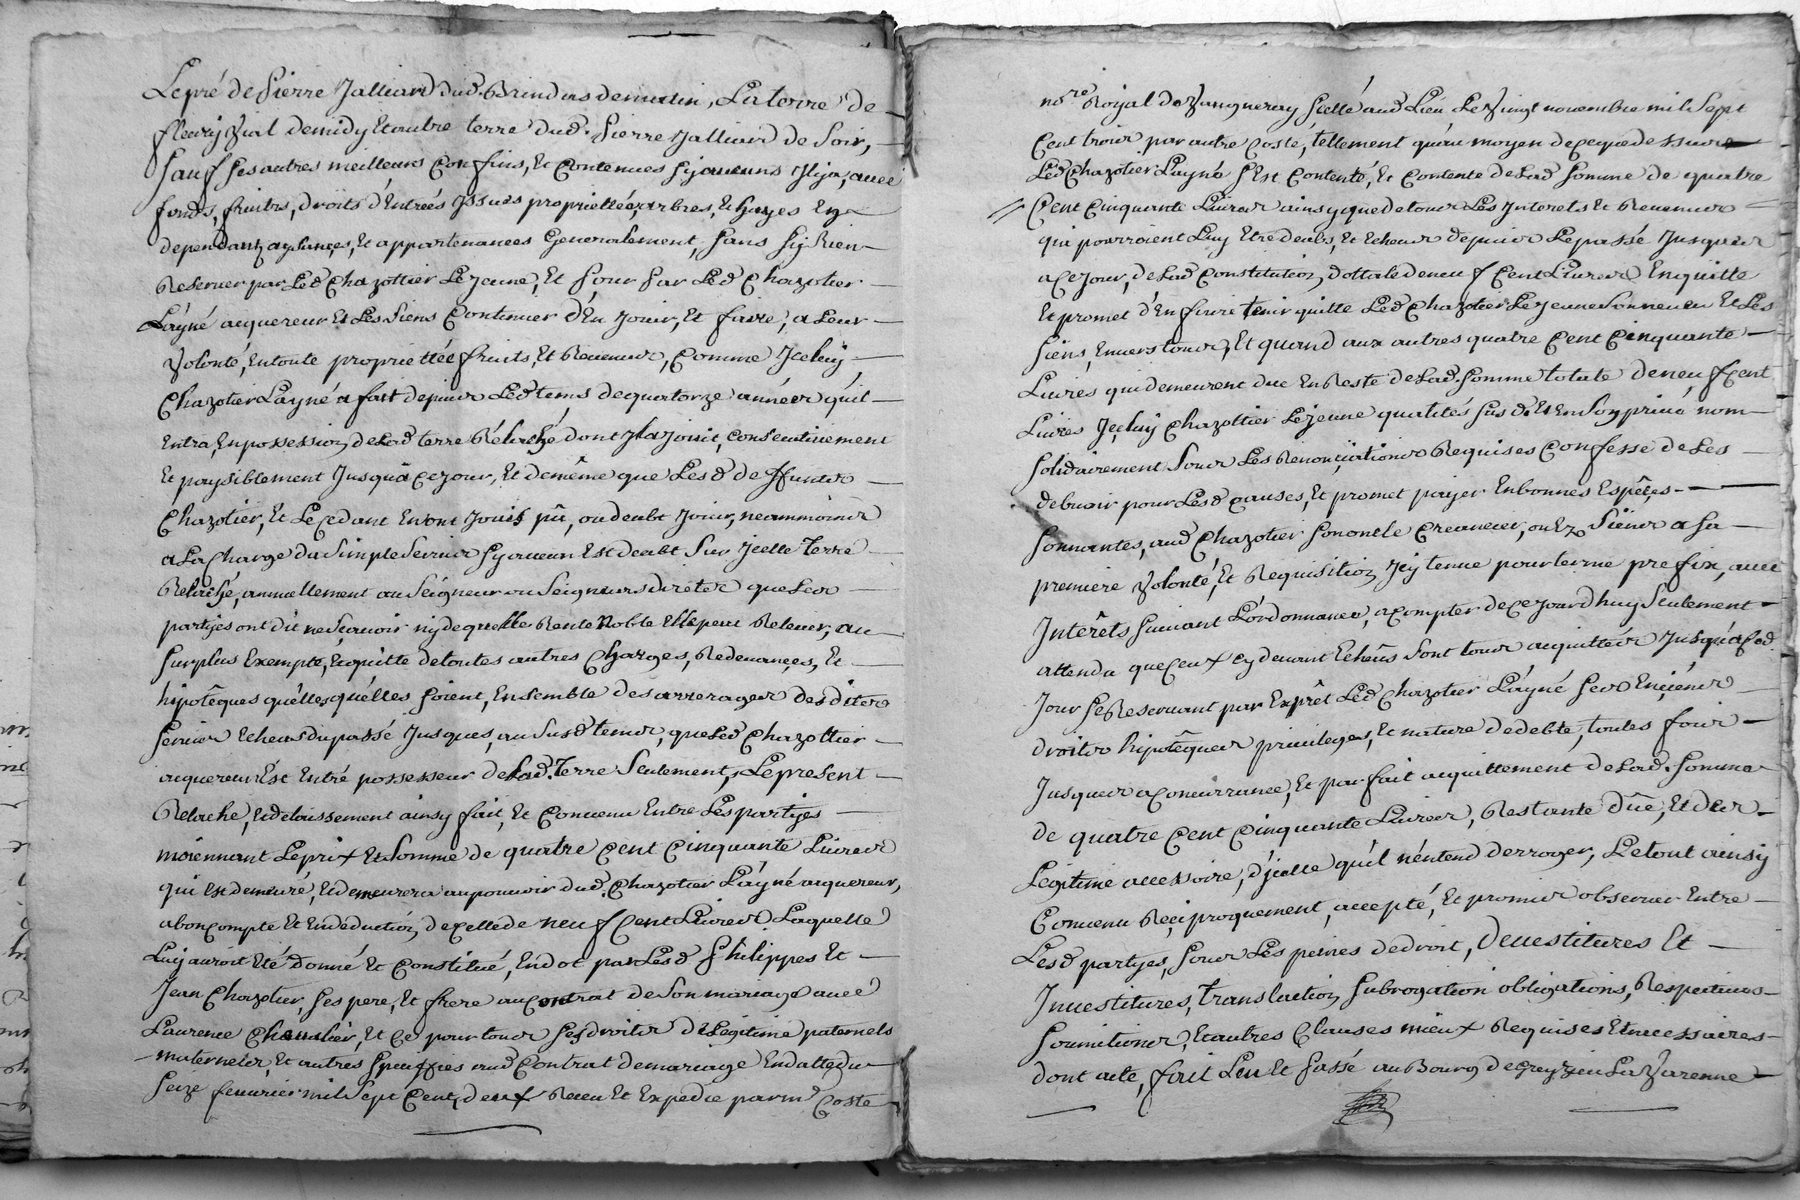 Le pré de Pierre Jalliard dud. Brindas de matin, La terre de
fleury Vial de midy et autre terre dud. Pierre Jalliard de Soir,
Sauf ses autres meilleurs Confins, Et Contenues sy aucuns Il ja, avec
fonds, fruits, droits d'Entrées Issues proprietté, arbres, Et hayes En
dependantz aysances, Et appartenances Generalement, Sans sy Rien
Reserver par Led Chazottier Le jeune, Et Pour Par Led Chazotier
L'ayné acquereur Et Les Siens Continuer d'En Jouir, Et faire, a Leur
Volonté, En toute propriettée fruits, Et Revenus, Comme Iceluy
Chazotier L'ayné a fait depuis Led tems de quatorze années qu'il
Entra, En possession de Lad terre Rélaché dont Il a Jouit, Consecutivement
Et paysiblement Jusqu'a Ce jour, Et de même que Lesd deffunts
Chazotier, Et Le Cedant En ont Jouis pû, ou deubt Jouir, neanmoins
a La Charge du Simple Servis Sy aucun Est deubt Sur Icelle Terre
Relaché, annuellement au Seigneur ou Seigneurs directes que Les
partyes ont dit ne Scavoir ny de quelle Rente Noble Elle peut Relever, au
Surplus Exempte, Et quitte de toutes autres Charges, Redevances, Et
hipotêques qu'elles qu'elles soient, Ensemble des arrerages desdites
Servis Echeus du passé Jusques, au Susd tems, que Led Chazottier
acquereur Est Entré possesseur de Lad. Terre Seulement, Le present
Relache, Et delaissement ainsy fait, Et Convenu Entre Les partyes
moiennant Le prix Et Somme de quatre Cent Cinquante Livres
qui Est demeuré, Et demeurera au pouvoir dud. Chazotier L'ayné acquereur,
a bon Compte Et En déduction, de Celle de neuf Cent Livres Laquelle
Luy auroit Eté donné Et Constitué, En dot par Lesd Philippes Et
Jean Chazotier, Ses pere, Et frere au Contrat de Son mariage avec
Laurence, Et Ce pour tous Ses droits de Legitime paternels
maternels, Et autres Speciffiés aud Contrat de mariage En datte du
Seize fevrier mil Sept Cent, deux Receu Et Expedie par m.e Coste
no.re Royal de Vaugneray Scellé aud Lieu Le Vingt novembre mil Sept
Cent trois par autre Coste, tellement qu'au moyen de Ce que dessus
Led Chazotier L'ayné S'Est Contenté, Et Contente de Lad Somme de quatre
Cent Cinquante Livres ainsy que de tous Les Interets Et Revenus
qui pourroient Luy Etre deubs, Et Echeus depuis Le passé Jusques
a Ce jour, de Lad Constitution, dottale de neuf Cent Livres En quitte
Et promet d'En faire tenir quitte Led Chazotier Le jeune Son neveu Et Les
Siens, Envers tous, Et quand aux autres quatre Cent Cinquante
Livres qui demeurent due En Reste de Lad. Somme totale de neuf Cent
Livres Iceluy Chazottier Le jeune qualités Susd Et En Son privé nom
Solidairement Sous Les Renonciations Requises Confesse de Les
debvoir pour Lesd Causes, Et promet payer En bonnes Espêces
Sonnantes, aud Chazotier Son oncle Creancier, ou Ez Siens a Sa
premiere Volonté, Et Requisition Icy tenue pour terme prefix, avec
Interêts Suivant L'ordonnance, a Compter de Ce jourd'huy Seulement
attendu que Ceux Cy devant Echeûs Sont tous acquittés Jusqu'a Ced.
Jour Se Reservant par Exprêt Led Chazotier L'ayné Ses Enciens
droits hipotêques privileges, Et nature de debte, toutes fois
Jusques a Concurrance, Et parfait acquittement de Lad. Somme
de quatre Cent Cinquante Livres, Restante dûe, Et des
Legitime accessoire, d'jcelle qu'il n'entend derroger, Le tout ainsy
Convenu Reciproquement, accepté, Et promis observer Entre
Lesd partyes, Sous Les peines de droit, devestitures Et
Investitures, translation Subrogation obligations, Respectives
Soumitions, Et autres Clauses mieux Requises Et necessaires
dont acte, fait Leu Et Passé au Bourg de Grezieu La Varenne